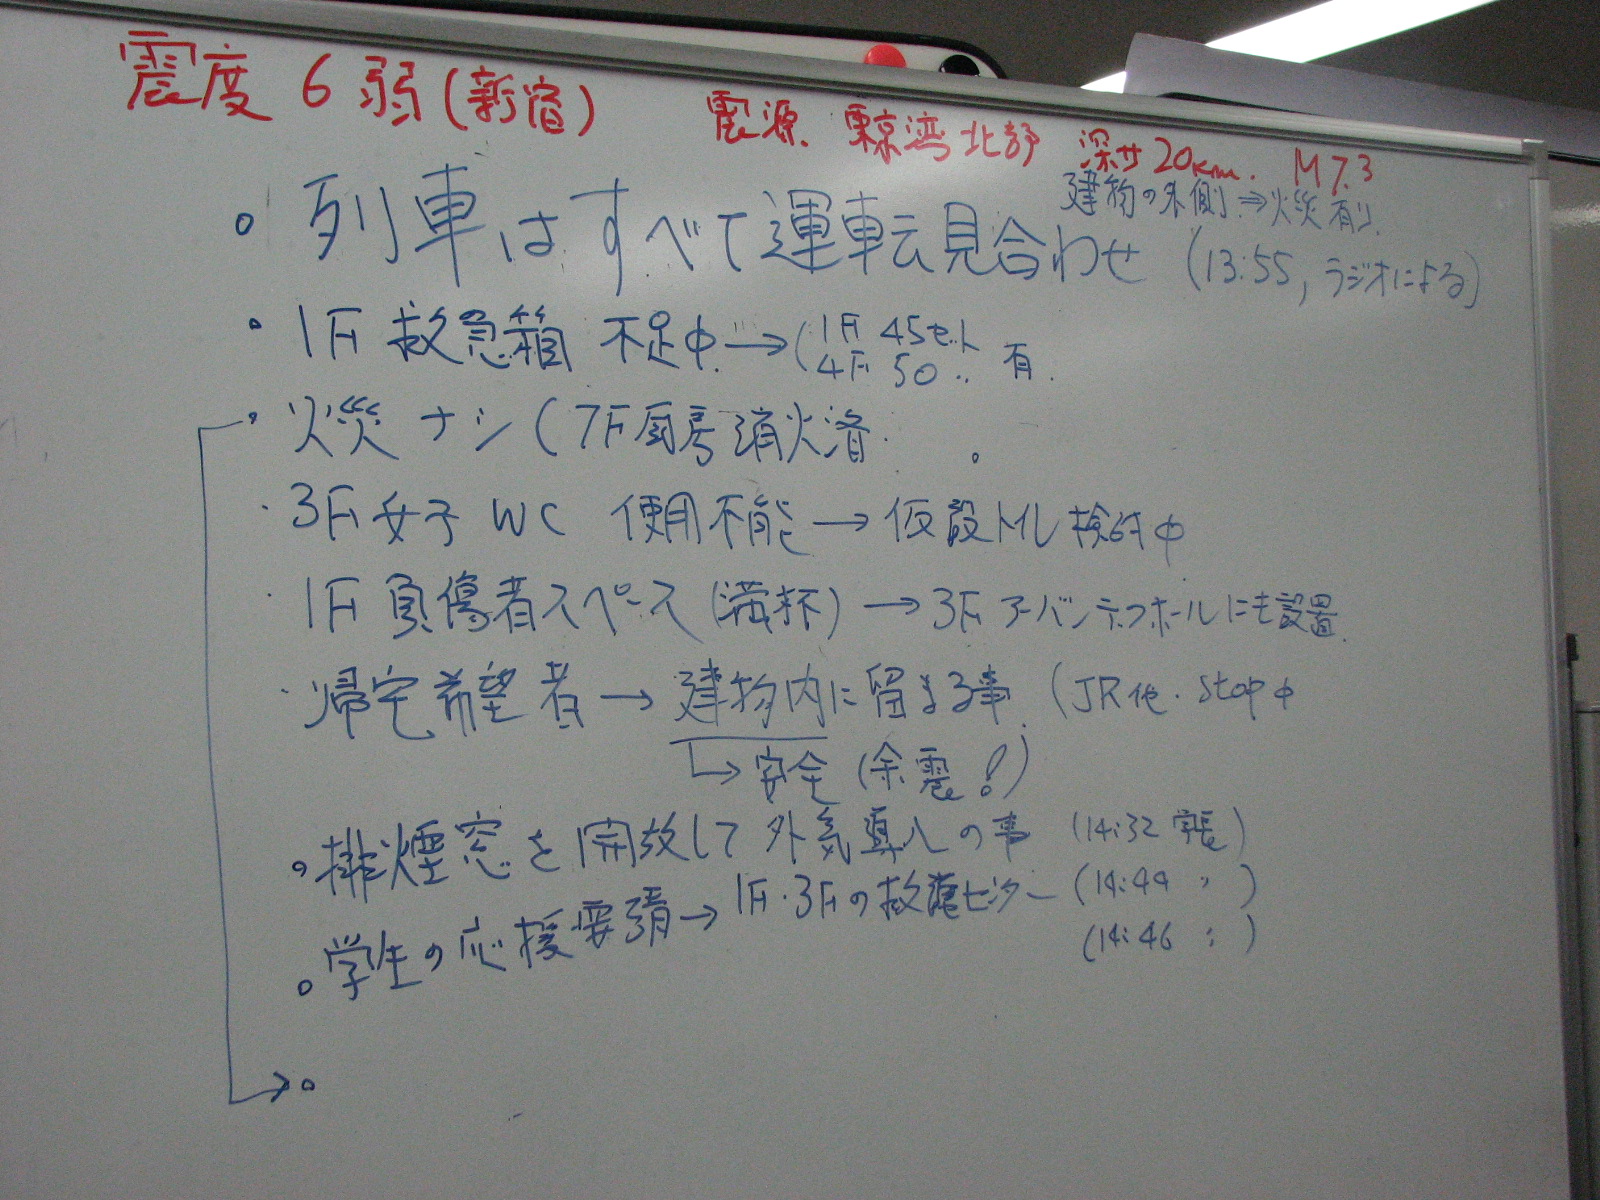 震度 6弱(新宿) 震源 東京湾北部 深サ20km. M7.3
建物の外側⇒火災有り.
。列車はすべて運転見合わせ (13:55, ラジオによる)
・1F 救急箱 不足中→(1F 45セット
4F 50 〃 有.
・火災ナシ(7F厨房消火済.
・3F女子WC 使用不能→仮設トイレ検討中
・1F負傷者スペース(満杯)→3Fアーバンテックホールにも設置.
・帰宅希望者→建物内に留まる事.(JR他.stop中
→安全(余震!)
。排煙窓を開放して外気導入の事 (14:32 室長)
。学生の応援要請→1F・3Fの救護センター (14:44 〃 )
(14:46 〃 )
→。